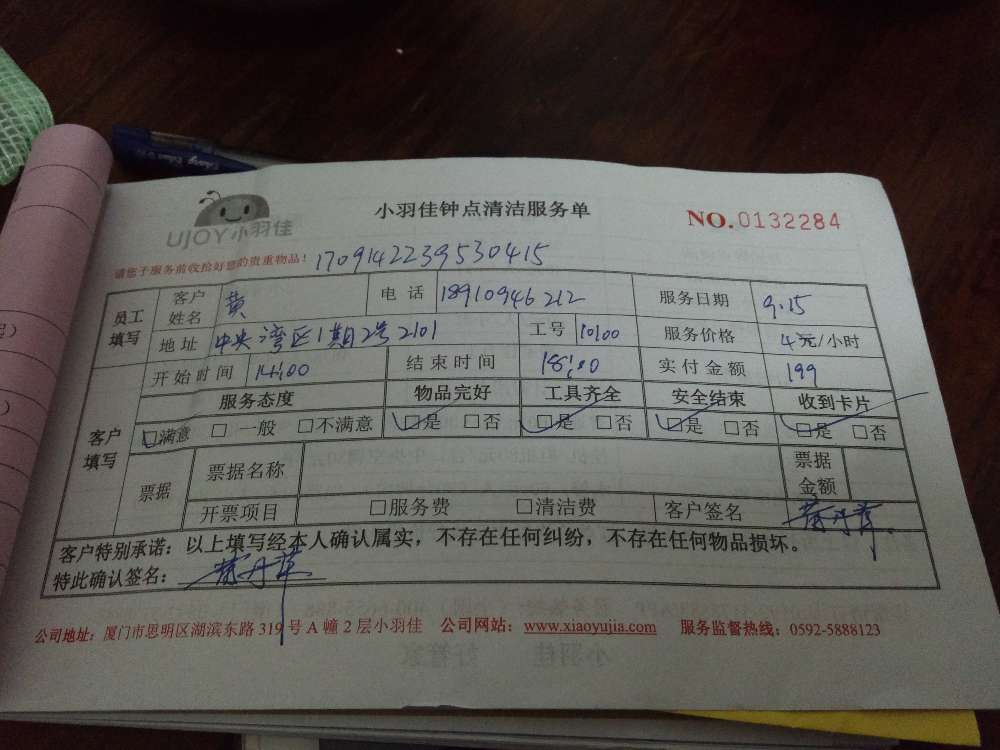 UJOY小羽佳
小羽佳钟点清洁服务单
NO.0132284
请您于服务前收拾好您的贵重物品！
170914223953 0415
员工填写 客户姓名 黄 电话 18910946212 服务日期 9.15
地址 中央湾区1期2号2101 工号 10100 服务价格 4元/小时
客户填写 开始时间 14:00 结束时间 18:00 实付金额 199
服务态度 物品完好 工具齐全 安全结束 收到卡片
□满意 □一般 □不满意 □是 □否 □是 □否 □是 □否 □是 □否
票据 票据名称 票据金额
开票项目 □服务费 □清洁费 客户签名
客户特别承诺：以上填写经本人确认属实，不存在任何纠纷，不存在任何物品损坏。
特此确认签名：
公司地址：厦门市思明区湖滨东路319号A幢2层小羽佳 公司网站：www.xiaoyujia.com 服务监督热线：0592-5888123